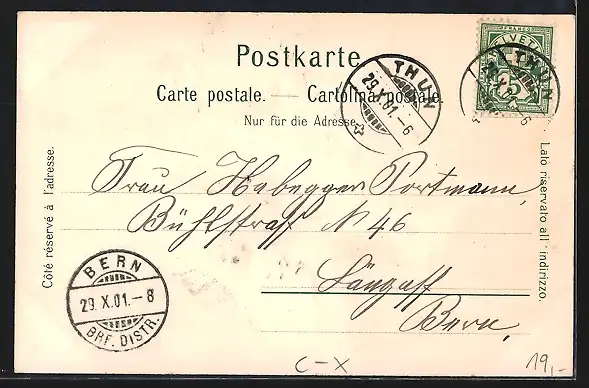 Postkarte
Carte postale. — Cartolina postale.
Nur für die Adresse.
FRANCO
HELVETIA
THUN
29.X.01.-6
THUN
Côté réservé à l'adresse.
Lato riservato all' indirizzo.
Frau Habegger Portmann,
Bühlstrass N 46
Länggass
Bern,
BERN
29.X.01.-8
BRF. DISTR.
C-X
19,-